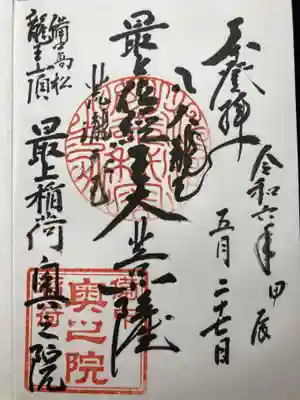 登拝
令和六年 甲辰
五月二十七日
八大龍王
最上位経王大菩薩
備中高松
龍王山頂
最上稲荷 奥之院
奥之院